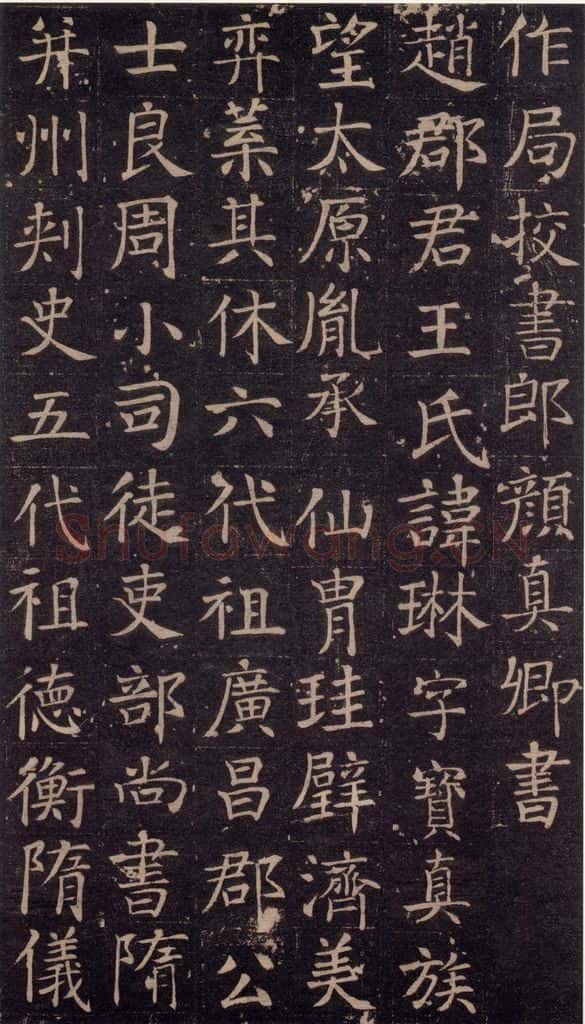 作局挍書郎顔真卿書
趙郡君王氏諱琳字寳真族
望太原胤承仙胄珪璧濟美
弈葉其休六代祖廣昌郡公
士良周小司徒吏部尚書隋
并州刾史五代祖德衡隋儀
Shufawang.CN